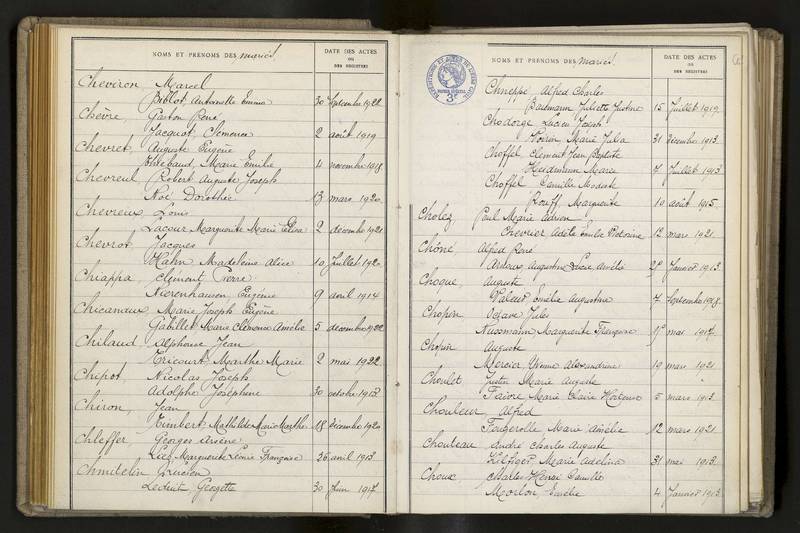 NOMS ET PRÉNOMS DES mariés
DATE DES ACTES
OU
DES REGISTRES
Cheviron, Marcel
Biblot Antoinette Emma 30 Septembre 1922
Chèvre, Gaston René
Jacquot Clémence 2 août 1919
Chevret, Auguste Eugène
Thiébaud, Marie Emilie 4 novembre 1918
Chevreul, Robert Auguste Joseph
Noé Dorothée 13 mars 1920
Chevreux, Louis
Lacour Marguerite Marie Elisa 2 décembre 1921
Chevrot, Jacques
Hahn, Madeleine Alice 10 Juillet 1920
Chiappa, Clément Pierre
Nierenhausen, Eugénie 9 avril 1914
Chicamaux, Marie Joseph Eugène
Gabillet Marie Clémence Amélie 5 décembre 1922
Chilaud, Alphonse Jean
Tricourt, Marthe Marie 2 mai 1922
Chipot, Nicolas Joseph
Adolphe Joséphine 30 octobre 1913
Chiron, Jean
Timbert Mathilde Marie Marthe 18 décembre 1920
Chleffer, Georges Arsène
Marguerite Léonie Françoise 26 avril 1913
Chmitelin, Lucien
Georgette 30 Juin 1917
NOMS ET PRÉNOMS DES mariés
DATE DES ACTES
OU
DES REGISTRES
Chneppe, Alfred Charles
Baumann Juliette Justine 15 Juillet 1919
Chodorge Lucien Joseph
Marie Julia 31 décembre 1913
Choffel Clément Jean Baptiste
Heidmann Marie 7 Juillet 1913
Choffel Camille Modeste
Rouff, Marguerite 10 août 1915
Cholez Paul Marie Adrien
Chevrier Adèle Emilie Victorine 12 mars 1921
Chôné, Alfred René
Augustine Lucie Amélie Janvier 1913
Choque Auguste
Emélie Augustine 7 Septembre 1918
Chopin Octave Jules
Nussmann, Marguerite Françoise mai 1917
Chopin Auguste
Mercier, Yvonne Alexandrine 19 mars 1921
Choulet Justin Marie Auguste
Faivre Marie Claire Hortense 5 mars 1913
Chouleur Alfred
Fougerolle Marie Amélie 12 mars 1921
Chouteau André Charles Auguste
Hilfiger Marie Adelina 31 mai 1913
Choux Charles Henri Camille
Morlon Emélie 4 Janvier 1913